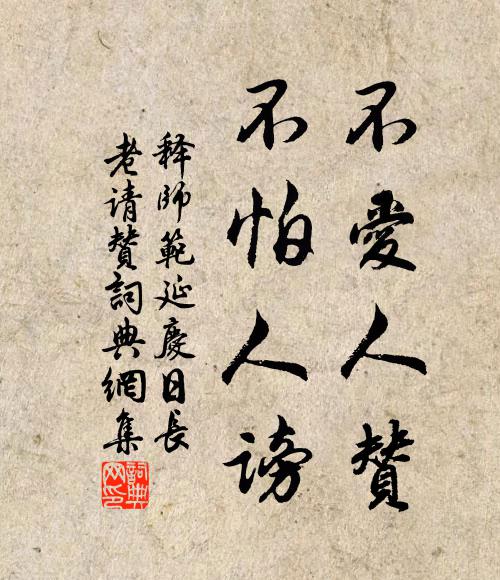 不愛人贊
不怕人謗
釋師範延慶日長
老请贊詞典網集
詞典
网印